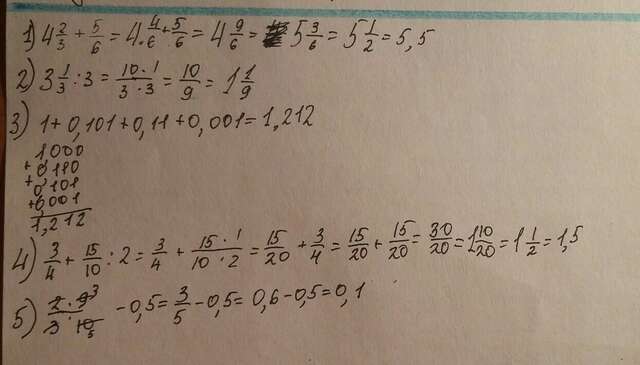 1) 4 2/3 + 5/6 = 4 4/6 + 5/6 = 4 9/6 = 5 3/6 = 5 1/2 = 5,5
2) 3 1/3 : 3 = 10·1/3·3 = 10/9 = 1 1/9
3) 1+0,101+0,11+0,001=1,212
1,000
+ 0,110
+ 0,101
+ 0,001
1,212
4) 3/4 + 15/10 : 2 = 3/4 + 15·1/10·2 = 15/20 + 3/4 = 15/20 + 15/20 = 30/20 = 1 10/20 = 1 1/2 = 1,5
5) 2·9 3/3·10 5 - 0,5 = 3/5 - 0,5 = 0,6 - 0,5 = 0,1